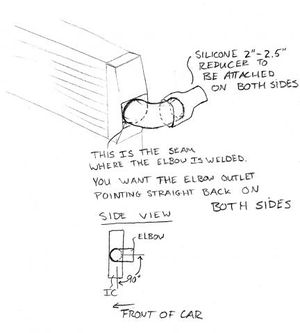 SILICONE 2"-2.5"
REDUCER TO
BE ATTACHED
ON BOTH SIDES
THIS IS THE SEAM
WHERE THE ELBOW IS WELDED.
YOU WANT THE ELBOW OUTLET
POINTING STRAIGHT BACK ON
BOTH SIDES
SIDE VIEW
ELBOW
90°
IC
FRONT OF CAR